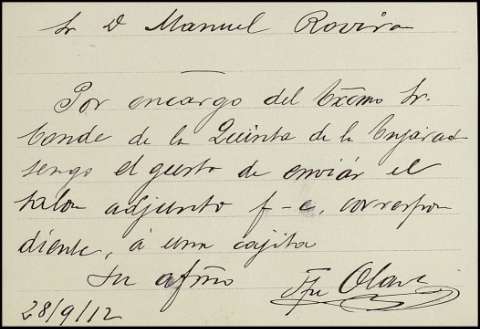 Sr D Manuel Rovira
Por encargo del Excmo Sr.
Conde de la Quinta de la Enjarada
tengo el gusto de enviar el
talon adjunto f-c. correspon
diente, á una cajita
Su afmo
Olavi
28/9/12